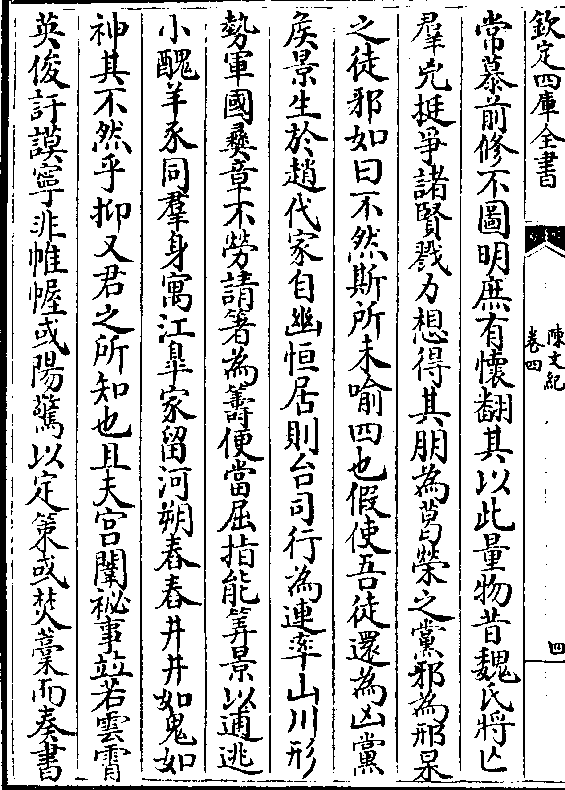 欽定四庫全書
陳文紀
卷四
四
常慕前修不圖明庶有懷翻其以此量物昔魏氏將亾
羣兇挺爭諸賢戮力想得其朋為葛榮之黨邪為邢杲
之徒邪如曰不然斯所未喻四也假使吾徒還為凶黨
矦景生於趙代家自幽恒居則台司行為連率山川形
勢軍國彝章不勞請箸為籌便當屈指能筭景以逋逃
小醜羊豕同羣身寓江臯家留河朔舂舂井井如鬼如
神其不然乎抑又君之所知也且夫宮闈祕事竝若雲霄
英俊訏謨寧非帷幄或陽驚以定策或焚藁而奏書